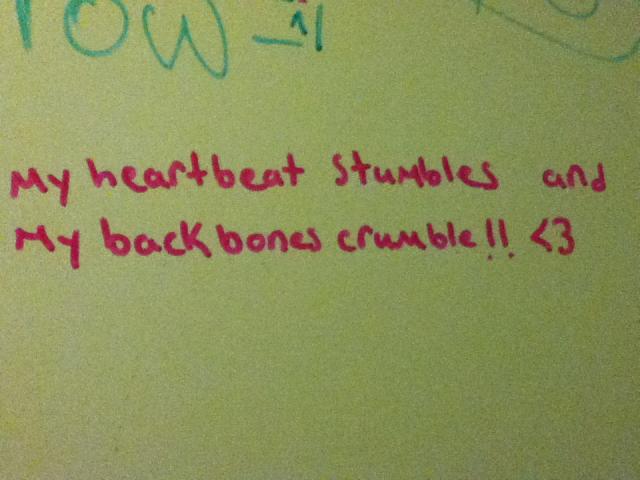 row
My heartbeat stumbles and
My backbones crumble!! <3